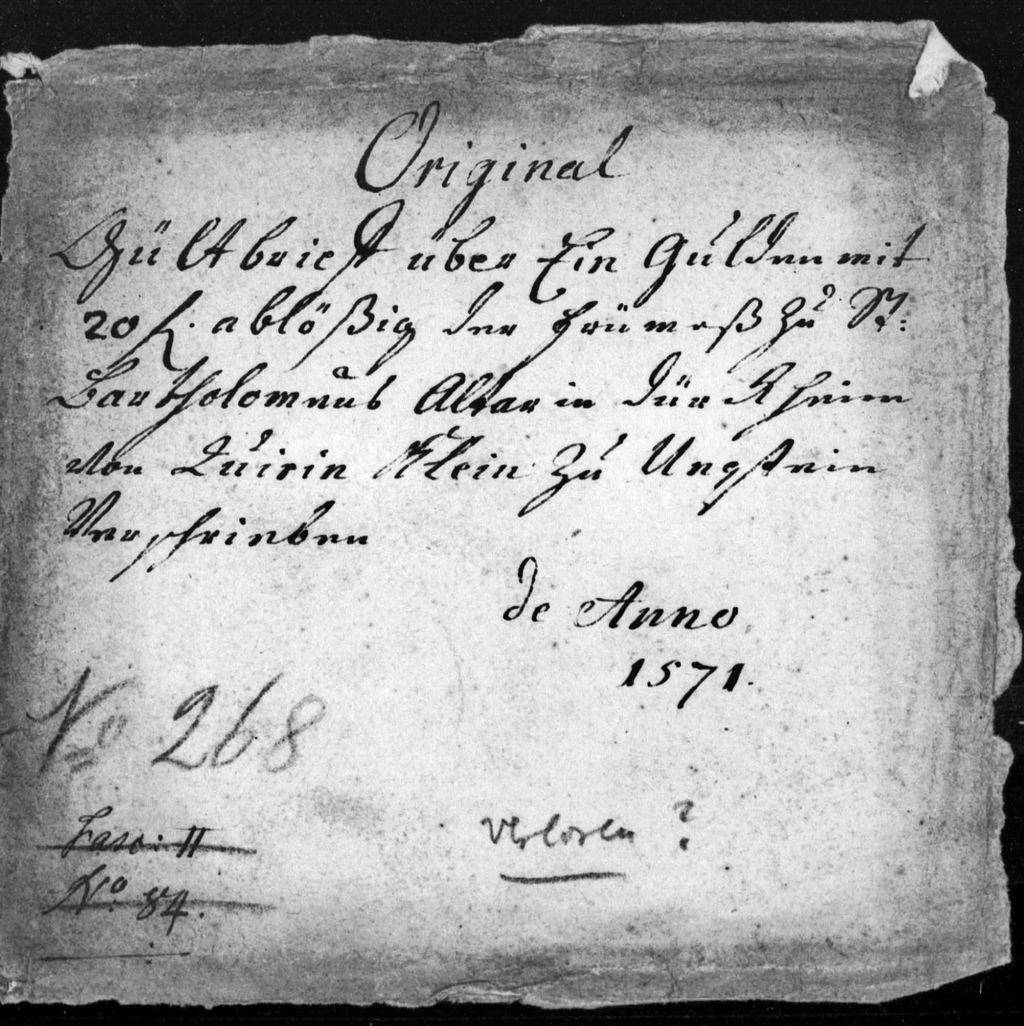 Original
Gültbrieff über Ein Gulden mit
20 f. ablößig der frümeß zu St:
Bartholomeus Altar in dürckheim
von Quirin Klein zu Ungstein
Verschrieben
de Anno
1571.
No 268
Fasc: II
verloren ?
No. 84.